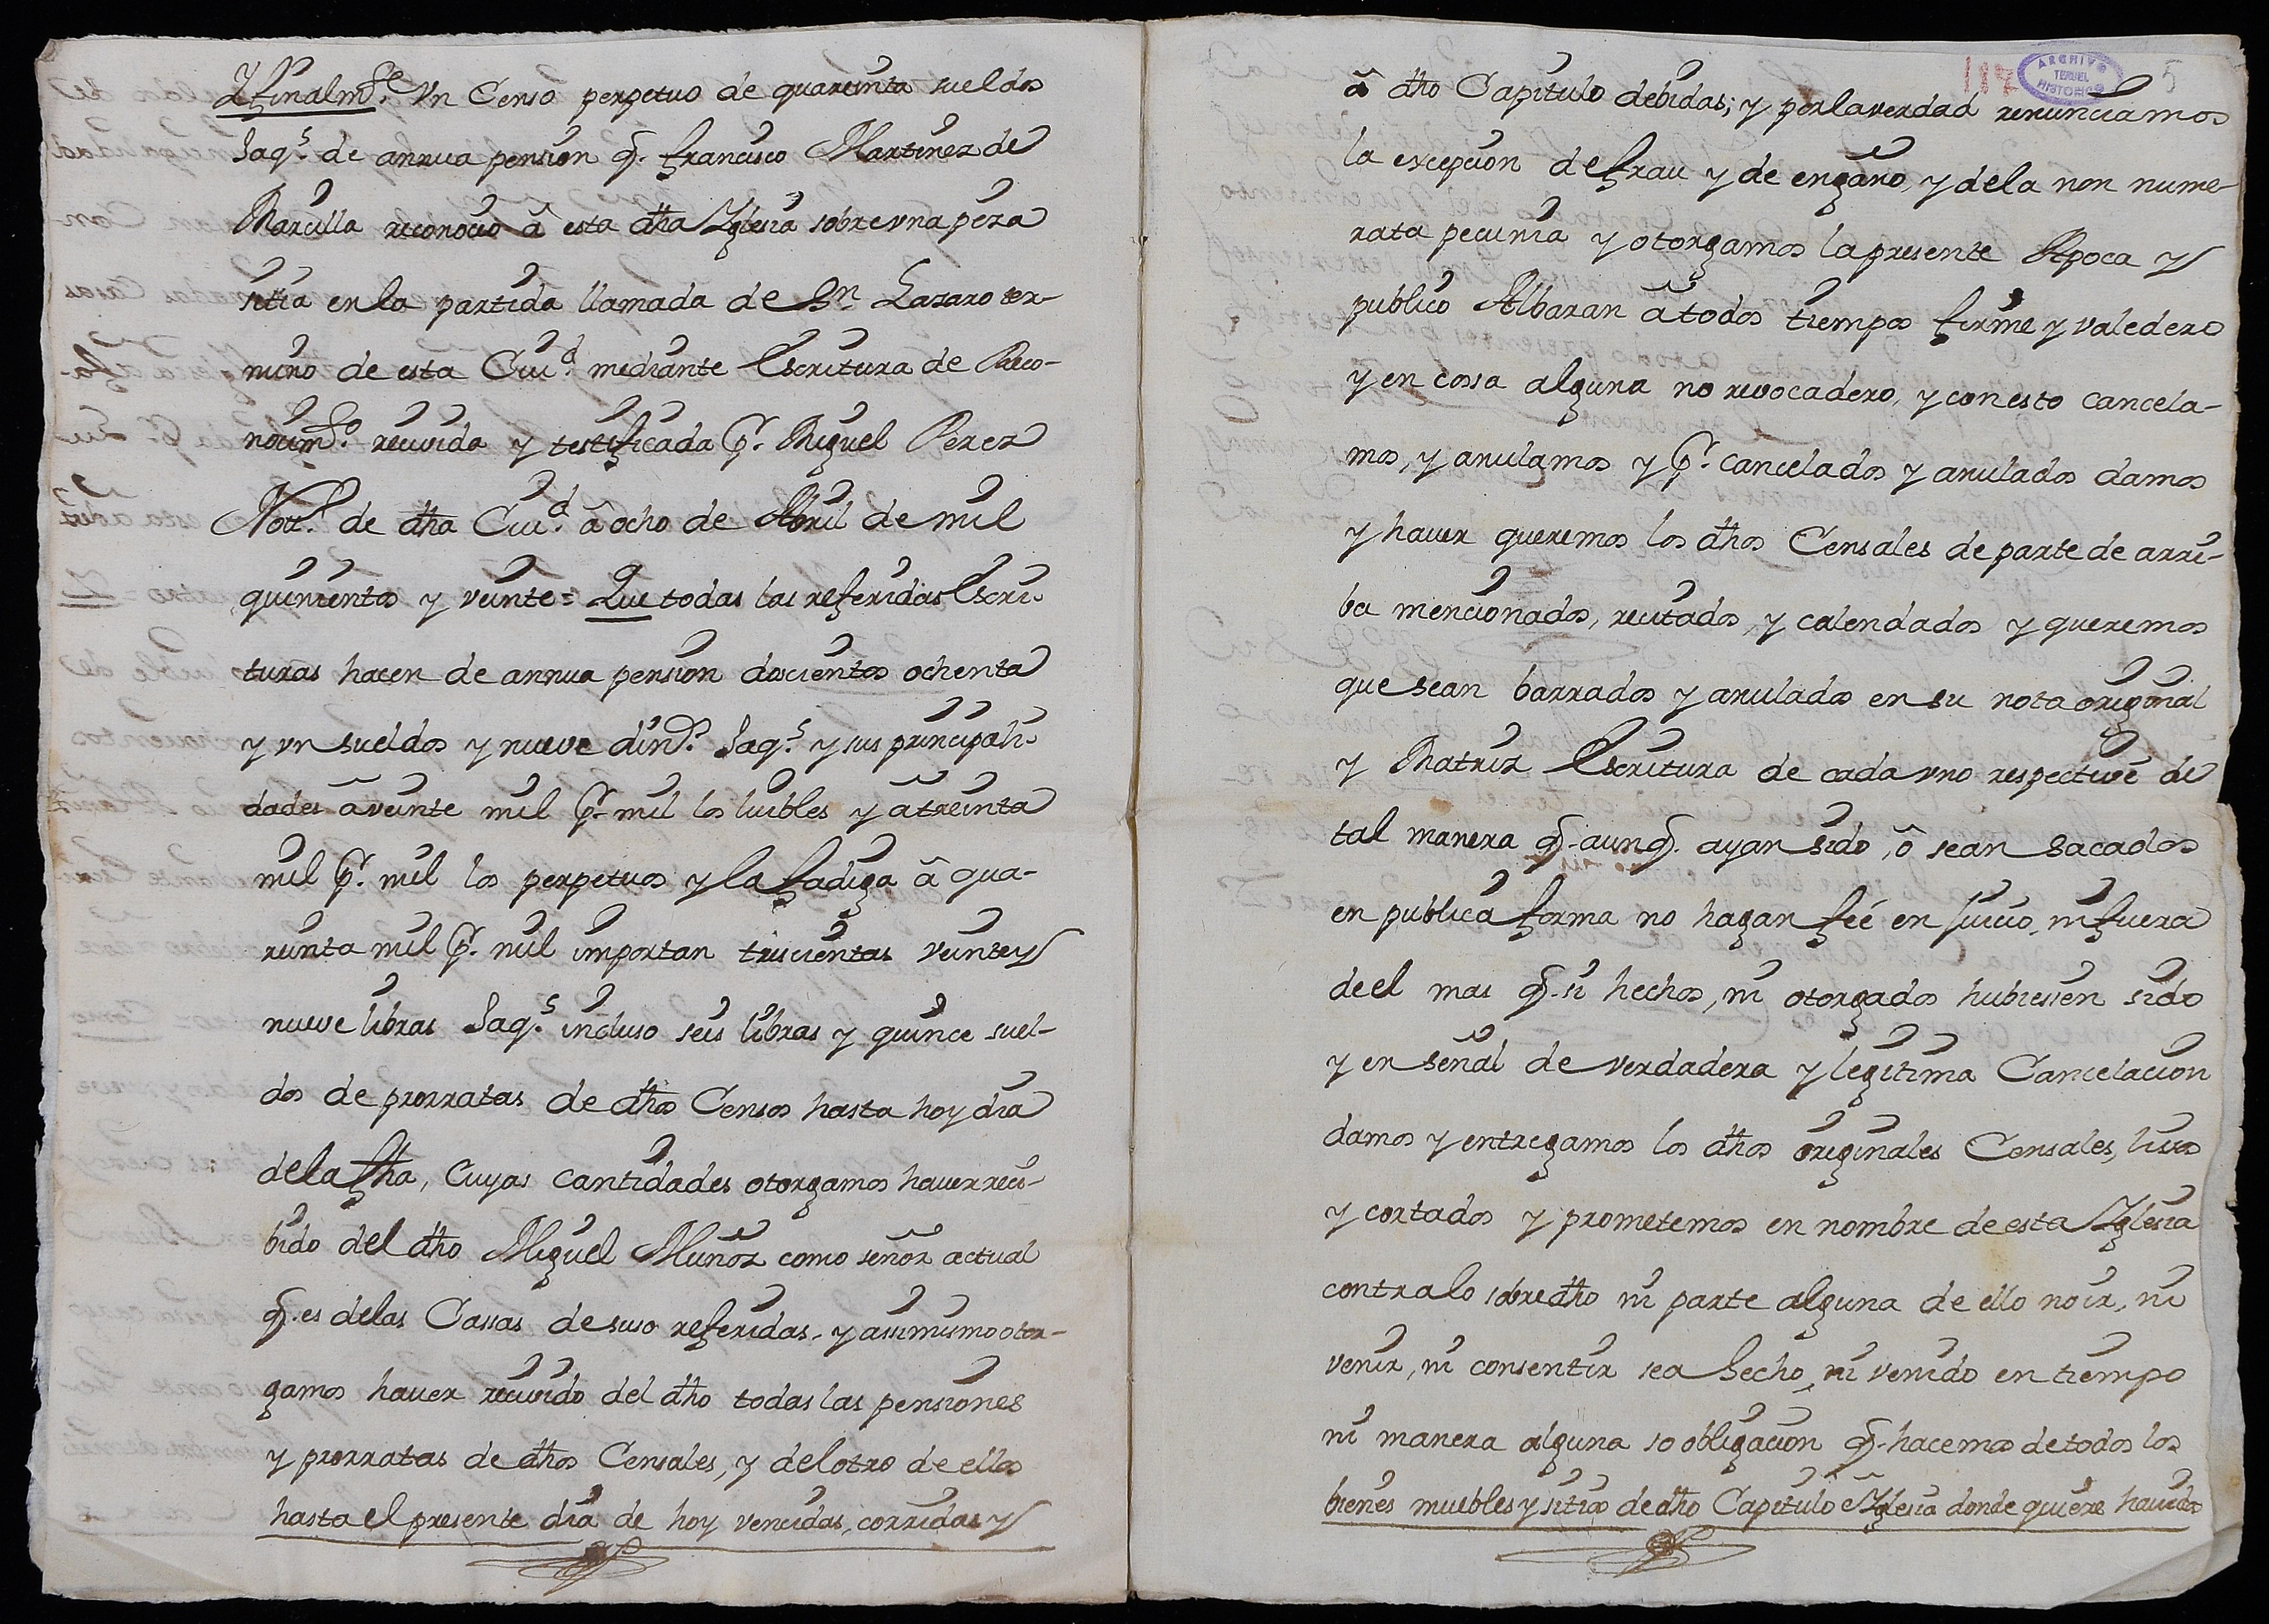 Yfinalmte. Vn Censo perpetuo de quareinta sueldos
Jaqs. de annua pension q. francisco Martinez de
Marcilla reconocio â esta dha Yglesia sobre vna peza
sitia en la partida llamada de Sn. Lazaro ter-
mino de esta Ciud. mediante Escritura de Reco-
nocimto. recivida y testificada pr. Miguel Perez
Nott. de dha Ciud. â ocho de Abril de mil
quinientos y veinte = Que todas las referidas Escri-
turas hacen de annua pension doscientos ochenta
y vn sueldos y nueve dins. Jaqs. y sus principali-
dades â veinte mil pr. mil los luibles y â treinta
mil pr. mil los perpetuos y la fadiga â qua-
renta mil pr. mil importan triscientas veinte y
nueve libras Jaqs. incluso seis libras y quince suel-
dos de prorratas de dhos Censos hasta hoy dia
de la fha, Cuyas cantidades otorgamos haver reci-
bido del dho Miguel Muñoz como señor actual
q. es de las Cassas de suso referidas, y assimismo otor-
gamos haver recivido del dho todas las pensiones
y prorratas de dhos Censales, y del otro de ellos
hasta el presente dia de hoy vencidas, corridas y
117
ARCHIVO
TERUEL
HISTORICO
5
â dho Capitulo debidas; y por la verdad renunciamos
la excepcion de frau y de engaño, y de la non nume-
rata pecunia y otorgamos la presente Apoca y
publico Albaran â todos tiempos firme y valedero
y en cossa alguna no revocadero, y con esto cancela-
mos, y anulamos y pr. cancelados y anulados damos
y haver queremos los dhos Censales de parte de arri-
ba mencionados, recitados, y calendados y queremos
que sean barrados y anulados en su nota original
y Matriz Escritura de cada vno respective de
tal manera q. aunq. ayan sido, ô sean sacados
en publica forma no hagan feé en Juicio, ni fuera
de el mas q. si hechos, ni otorgados hubiessen sido
y en señal de verdadera y legitima Cancelacion
damos y entregamos los dhos originales Censales, lisos
y cortados y prometemos en nombre de esta Yglesia
contra lo sobredho ni parte alguna de ello no ir, ni
venir, ni consentir sea hecho, ni venido en tiempo
ni manera alguna so obligacion q. hacemos de todos los
bienes muebles y sitios de dho Capitulo é Yglesia donde quiere havidos